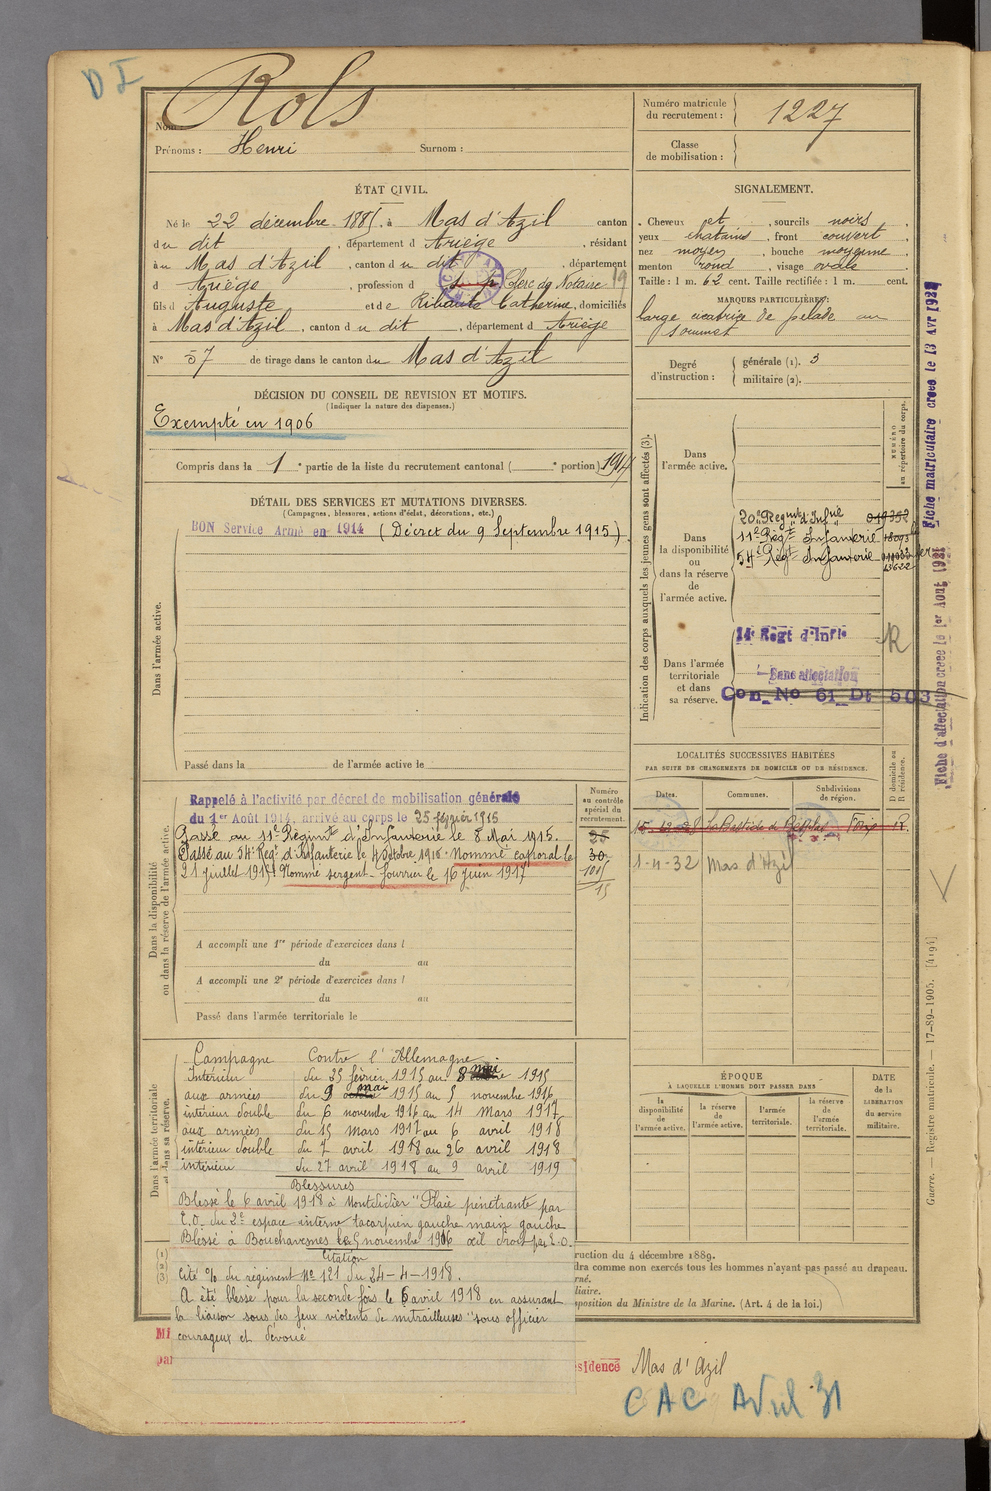 D I
Rols
Nom :
Prénoms : Henri Surnom :
ÉTAT CIVIL.
Né le 22 décembre 1885, à Mas d'Azil canton
du dit , département d Ariège , résidant
à u Mas d'Azil , canton d u dit , département
d Ariège , profession d Clerc de Notaire 19
fils d Auguste et de Ribaute Catherine, domiciliés
à Mas d'Azil , canton d u dit , département d Ariège
N° 57 de tirage dans le canton du Mas d'Azil
DÉCISION DU CONSEIL DE REVISION ET MOTIFS.
(Indiquer la nature des dispenses.)
Exempté en 1906
Compris dans la 1e partie de la liste du recrutement cantonal ( e portion) 1914
DÉTAIL DES SERVICES ET MUTATIONS DIVERSES.
(Campagnes, blessures, actions d'éclat, décorations, etc.)
BON Service Armé en 1914 (Décret du 9 Septembre 1915)
Dans l'armée active.
Passé dans la de l'armée active le
Dans la disponibilité
ou dans la réserve de l'armée active.
Rappelé à l'activité par décret de mobilisation générale
du 1er Août 1914, arrivé au corps le 25 février 1915
Passé au 11e Régimt d'Infanterie le 8 Mai 1915.
Passé au 54e Regt d'Infanterie le 4 Octobre 1915. Nommé caporal le
21 juillet 1915. Nommé sergent-fourrier le 16 juin 1917
Numéro
au contrôle
spécial du
recrutement.
25
30
1015
15
A accompli une 1re période d'exercices dans l
du au
A accompli une 2e période d'exercices dans l
du au
Passé dans l'armée territoriale le
Dans l'armée territoriale
et dans sa réserve.
Campagne Contre l'Allemagne
Intérieur du 25 février 1915 au 8 mai 1915
aux armées du 9 mai 1915 au 5 novembre 1916
intérieur double du 6 novembre 1916 au 14 Mars 1917
aux armées du 15 Mars 1917 au 6 avril 1918
intérieur double du 7 avril 1918 au 26 avril 1918
intérieur du 27 avril 1918 au 9 avril 1919
Blessures
Blessé le 6 avril 1918 à Montdidier "Plaie pénétrante par
E.O. du 2e espace interne tacarpien gauche main gauche
Blessé à Bouchavesnes le 5 novembre 1916 œil droit par E.O.
Citation
Cité % du régiment N° 121 du 24-4-1918.
A été blessé pour la seconde fois le 6 avril 1918 en assurant
la liaison sous des feux violents de mitrailleuses "sous officier
courageux et dévoué
(1)
(2)
(3)
ruction du 4 décembre 1889.
dra comme non exercés tous les hommes n'ayant pas passé au drapeau.
rné.
liaire.
sposition du Ministre de la Marine. (Art. 4 de la loi.)
Mi
par
sidence Mas d'Azil
CAC Avril 31
Numéro matricule
du recrutement : 1227
Classe
de mobilisation :
SIGNALEMENT.
Cheveux et , sourcils noirs ,
yeux chatains , front couvert ,
nez moyen , bouche moyenne ,
menton rond , visage ovale
Taille : 1 m. 62 cent. Taille rectifiée : 1 m. cent.
MARQUES PARTICULIÈRES :
large cicatrice de pelade au
sommet
Degré
d'instruction :
générale (1). 3
militaire (2).
Indication des corps auxquels les jeunes gens sont affectés (3).
NUMÉRO
au répertoire du corps.
Dans
l'armée active.
Dans
la disponibilité
ou
dans la réserve
de
l'armée active.
20e Regimt d'Infrie 019352
11e Regt Infanterie 18093
54e Regt Infanterie 13622
Dans l'armée
territoriale
et dans
sa réserve.
14e Régt d'Infie
R
Sans affectation
Con_No 61_Dt 503
LOCALITÉS SUCCESSIVES HABITÉES
PAR SUITE DE CHANGEMENTS DE DOMICILE OU DE RÉSIDENCE.
Dates. Communes. Subdivisions
de région.
D domicile ou
R résidence.
Foix R
1-4-32 Mas d'Azil
ÉPOQUE
À LAQUELLE L'HOMME DOIT PASSER DANS
la
disponibilité
de
l'armée active.
la réserve
de
l'armée active.
l'armée
territoriale.
la réserve
de
l'armée
territoriale.
DATE
de la
LIBÉRATION
du service
militaire.
Fiche matriculaire créée le 13 Avr 1932
Fiche d'affectation créée le 1er Août 1931
Guerre. — Registre matricule. — 17-89-1905. [4194]